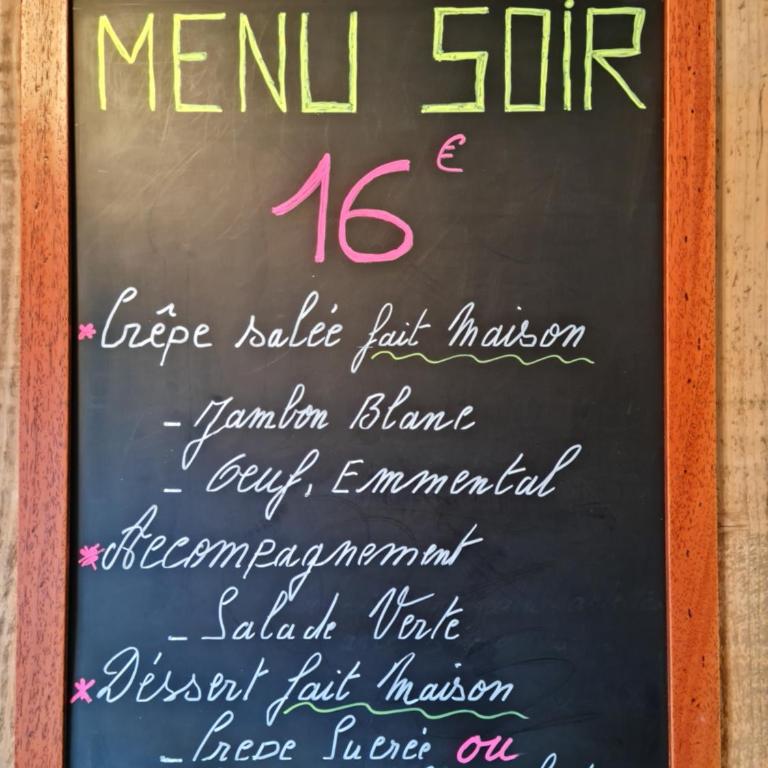 MENU SOIR
16€
* Crêpe salée fait Maison
- Jambon Blanc
- Oeuf, Emmental
* Accompagnement
- Salade Verte
* Déssert fait Maison
- Crepe Sucrée ou